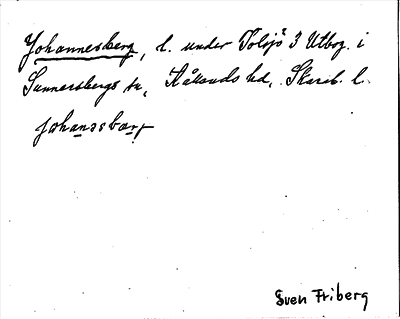 Johannesberg, l. under Tolsjö 3 Utbog. i
Sunnersbergs sn, Kållands hd, Skarab. l.
johanəsbærj
Sven Friberg